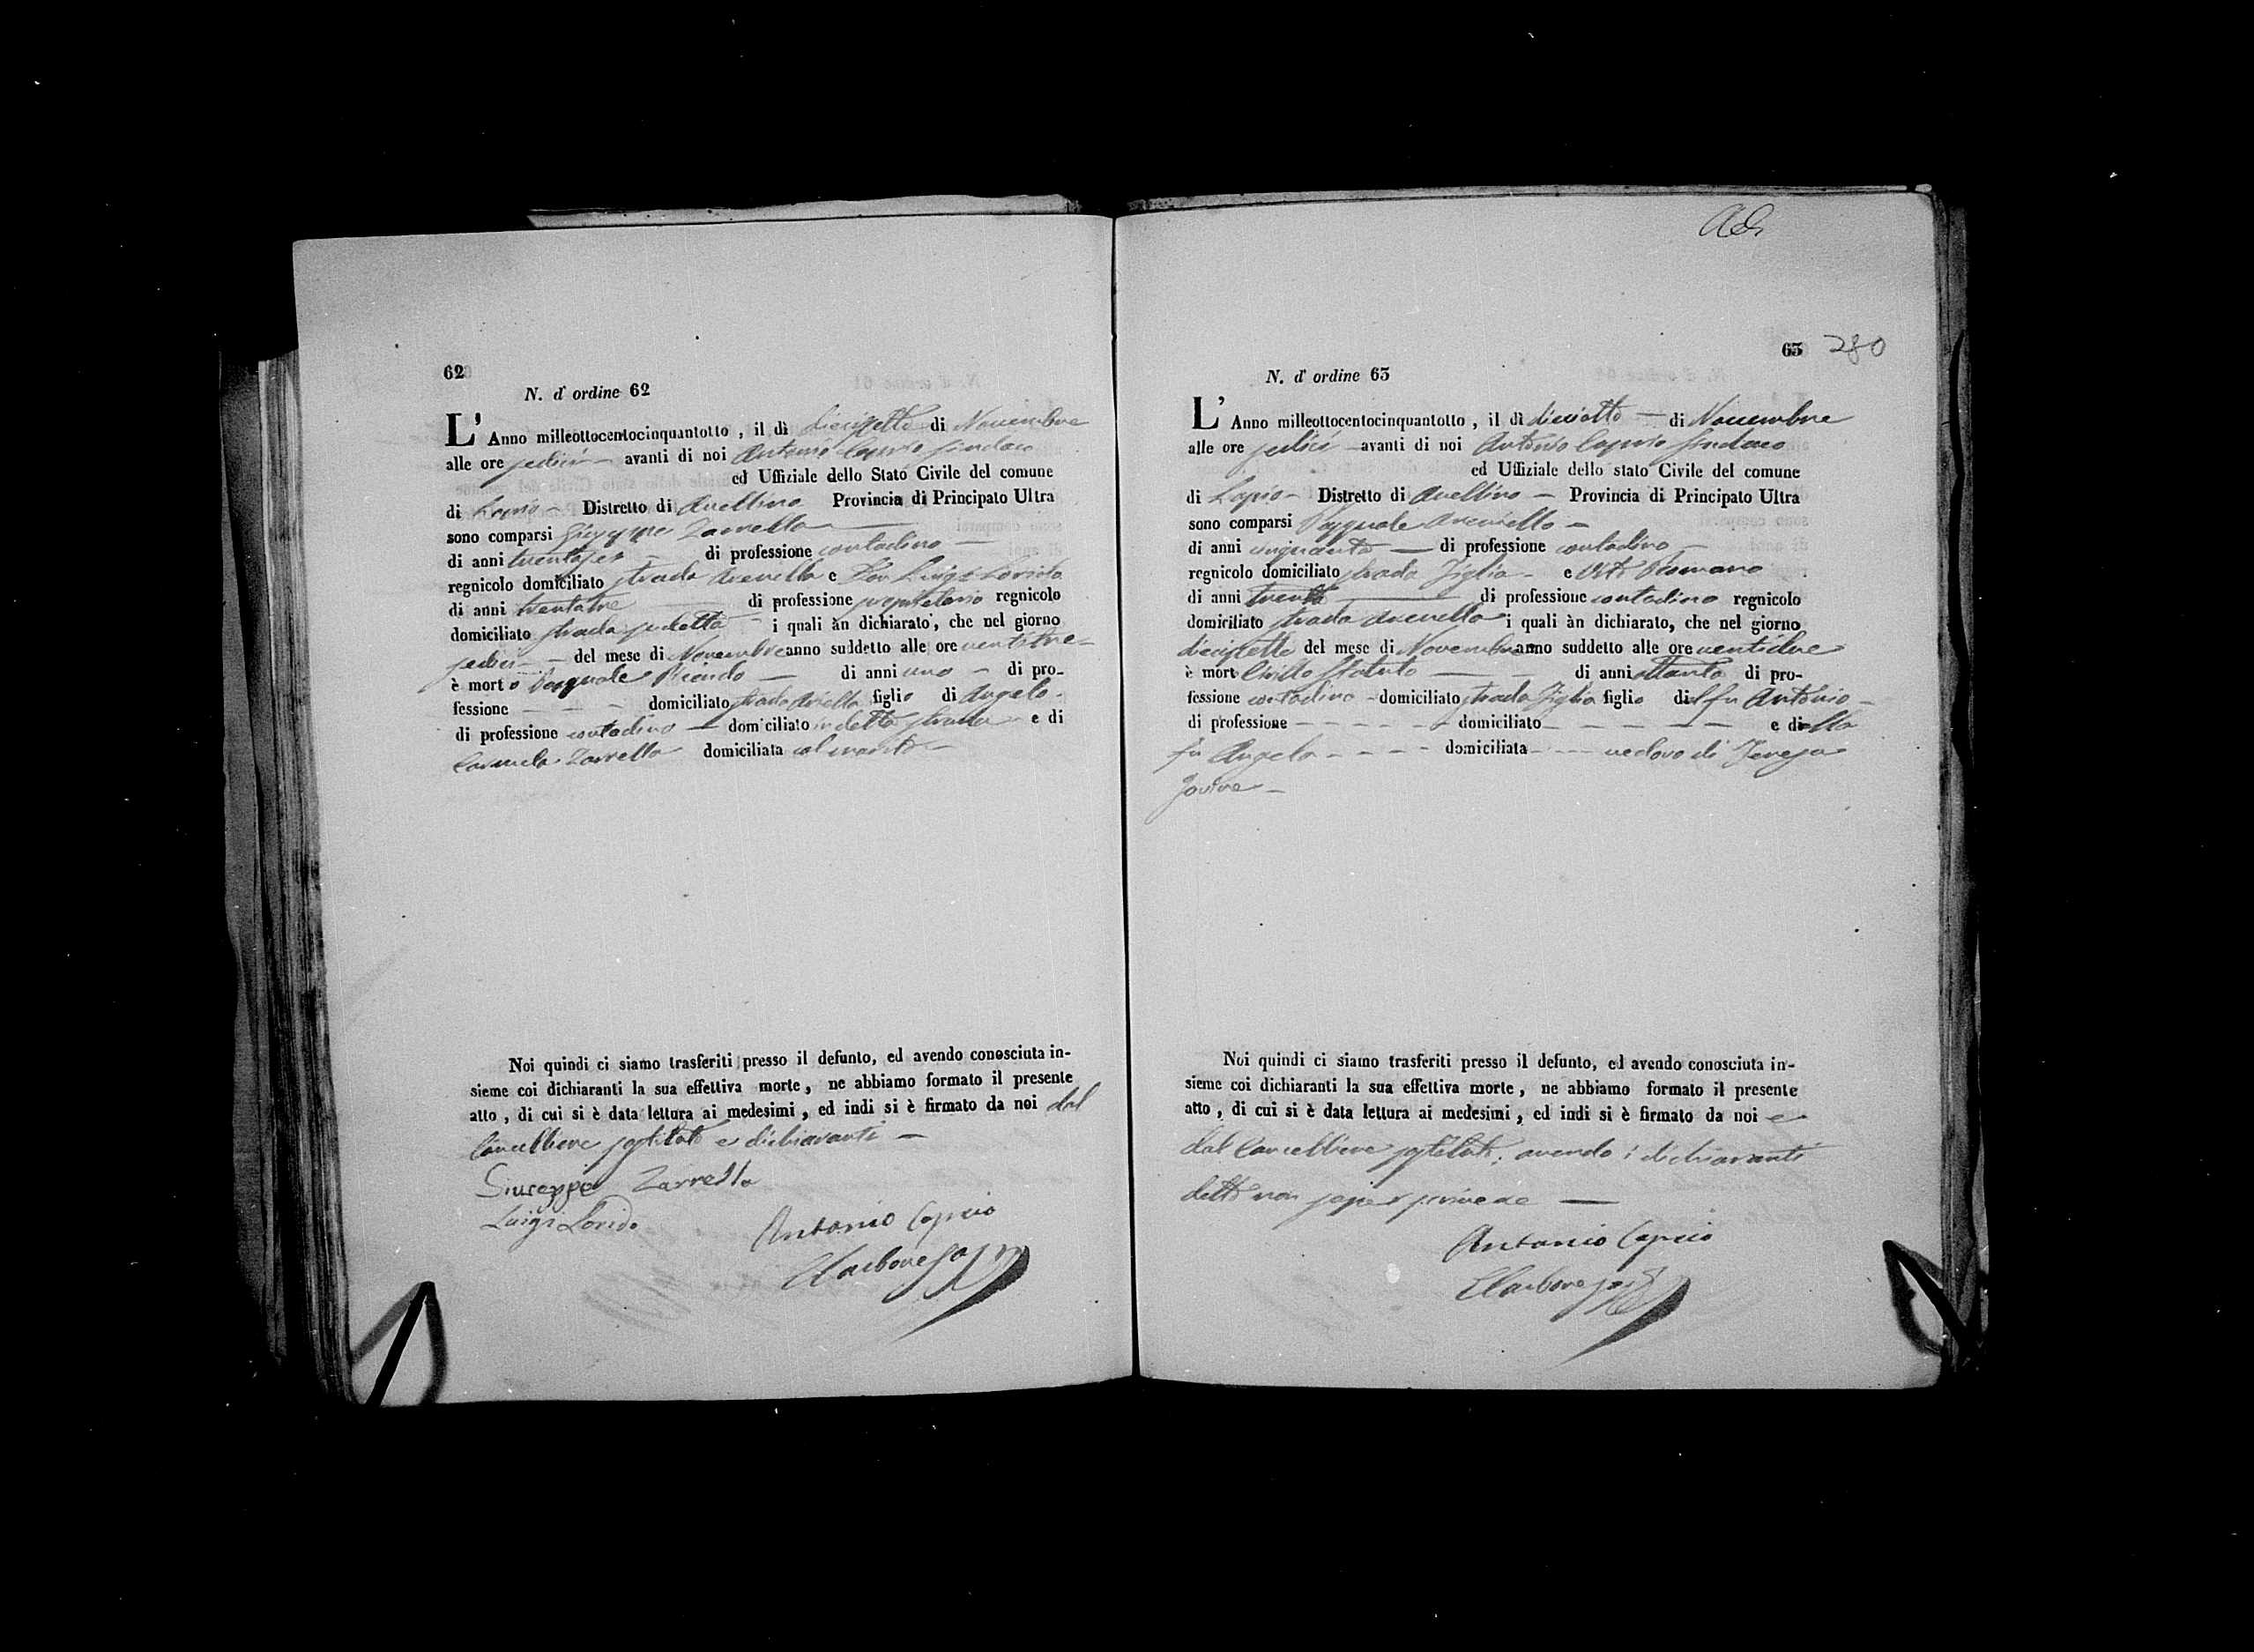 62
N. d' ordine 62
L' Anno milleottocentocinquantotto , il dì diecisette di Novembre
alle ore sedici avanti di noi Antonio Caprio Sindaco
ed Uffiziale dello Stato Civile del comune
di Lapio Distretto di Avellino Provincia di Principato Ultra
sono comparsi Giuseppe Zarrella
di anni trentasei di professione contadino
regnicolo domiciliato strada Arenella e Don Luigi
di anni trentatre di professione proprietario regnicolo
domiciliato strada sudetta i quali àn dichiarato, che nel giorno
sedici del mese di Novembre anno suddetto alle ore ventitre
è morto Pasquale di anni uno di pro-
fessione domiciliato strada figlio di Angelo
di professione contadino domiciliato in detta strada e di
Carmela Zarrella domiciliata col marito
Noi quindi ci siamo trasferiti presso il defunto, ed avendo conosciuta in-
sieme coi dichiaranti la sua effettiva morte, ne abbiamo formato il presente
atto , di cui si è data lettura ai medesimi , ed indi si è firmato da noi dal
Cancelliere sostituto e dichiaranti
Giuseppe Zarrella
Luigi
Antonio Caprio
Ads
63 280
N. d' ordine 63
L' Anno milleottocentocinquantotto , il dì dieciotto di Novembre
alle ore sedici avanti di noi Antonio Caprio Sindaco
ed Uffiziale dello stato Civile del comune
di Lapio Distretto di Avellino Provincia di Principato Ultra
sono comparsi Pasquale
di anni cinquanta di professione contadino
regnicolo domiciliato strada e Vito Romano
di anni trenta di professione contadino regnicolo
domiciliato strada Arenella i quali àn dichiarato, che nel giorno
diecisette del mese di Novembre anno suddetto alle ore ventidue
è morto di anni ottanta di pro-
fessione contadino domiciliato strada figlio del fu Antonio
di professione domiciliato e della
fu Angela domiciliata vedovo di Teresa
Jovine
Noi quindi ci siamo trasferiti presso il defunto, ed avendo conosciuta in-
sieme coi dichiaranti la sua effettiva morte, ne abbiamo formato il presente
atto , di cui si è data lettura ai medesimi , ed indi si è firmato da noi e
dal Cancelliere sostituto; avendo i dichiaranti
detto non saper scrivere
Antonio Caprio